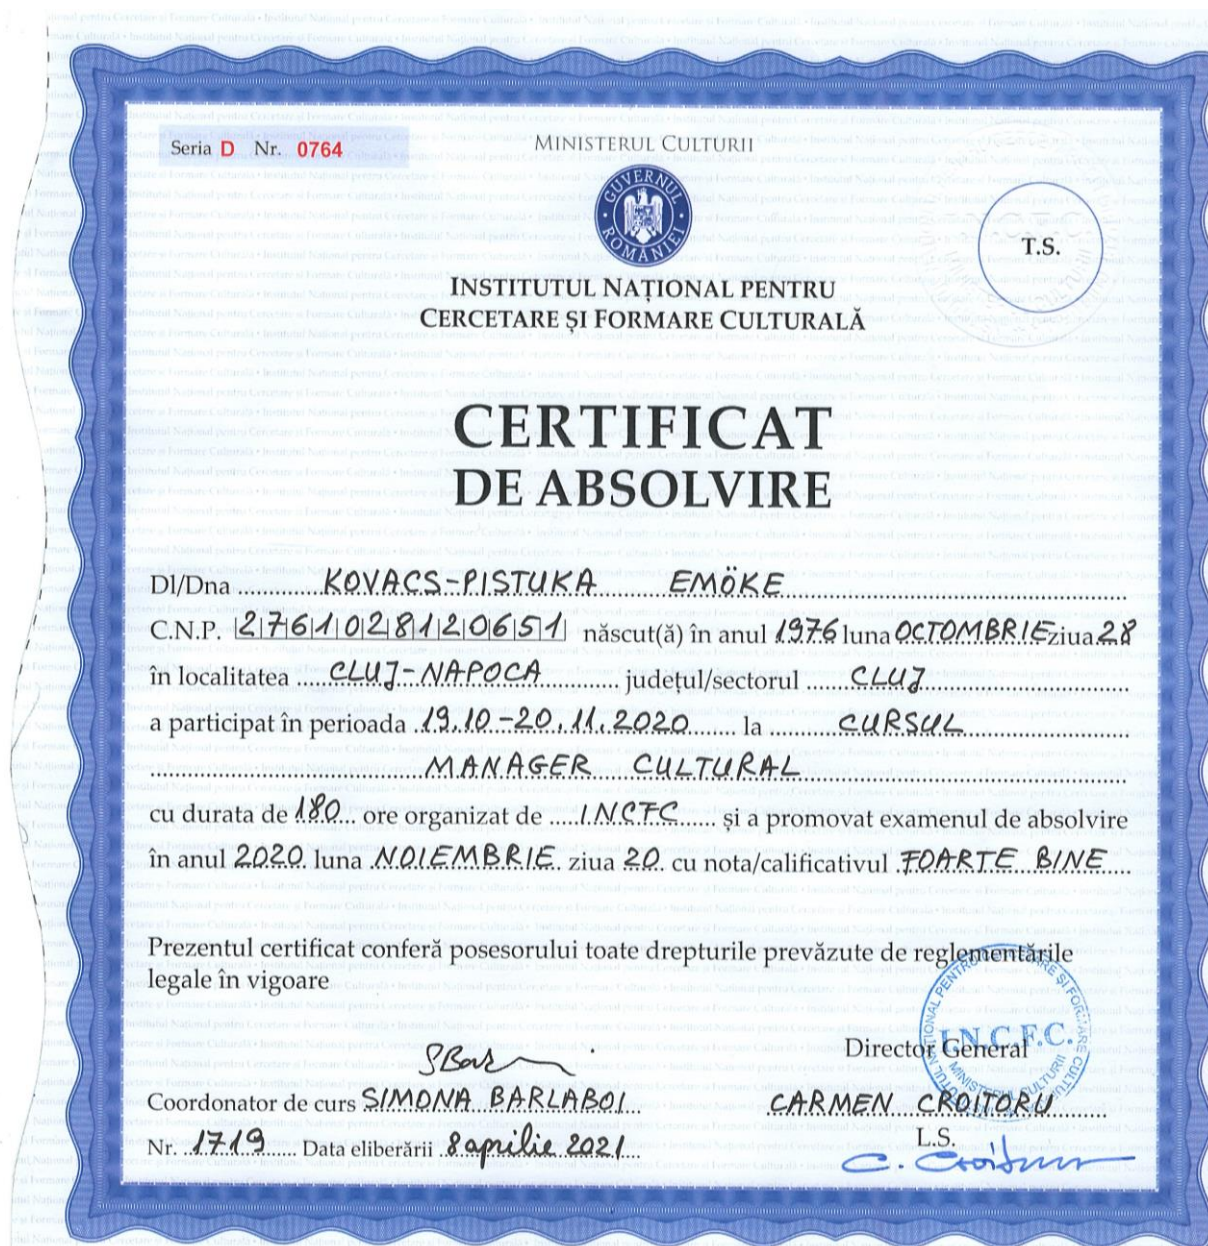 Seria D Nr. 0764
MINISTERUL CULTURII
GUVERNUL ROMÂNIEI
T.S.
INSTITUTUL NAȚIONAL PENTRU
CERCETARE ȘI FORMARE CULTURALĂ
CERTIFICAT
DE ABSOLVIRE
Dl/Dna KOVACS-PISTUKA EMÖKE
C.N.P. 2|7|6|1|0|2|8|1|2|0|6|5|1| născut(ă) în anul 1976 luna OCTOMBRIE ziua 28
în localitatea CLUJ-NAPOCA județul/sectorul CLUJ
a participat în perioada 19.10-20.11.2020 la CURSUL
MANAGER CULTURAL
cu durata de 180 ore organizat de INCFC și a promovat examenul de absolvire
în anul 2020 luna NOIEMBRIE ziua 20 cu nota/calificativul FOARTE BINE
Prezentul certificat conferă posesorului toate drepturile prevăzute de reglementările
legale în vigoare
I.N.C.F.C.
MINISTERUL CULTURII
Director General
Coordonator de curs SIMONA BARLABOI CARMEN CROITORU
Nr. 1719 Data eliberării 8 aprilie 2021 L.S.
C. Croitoru